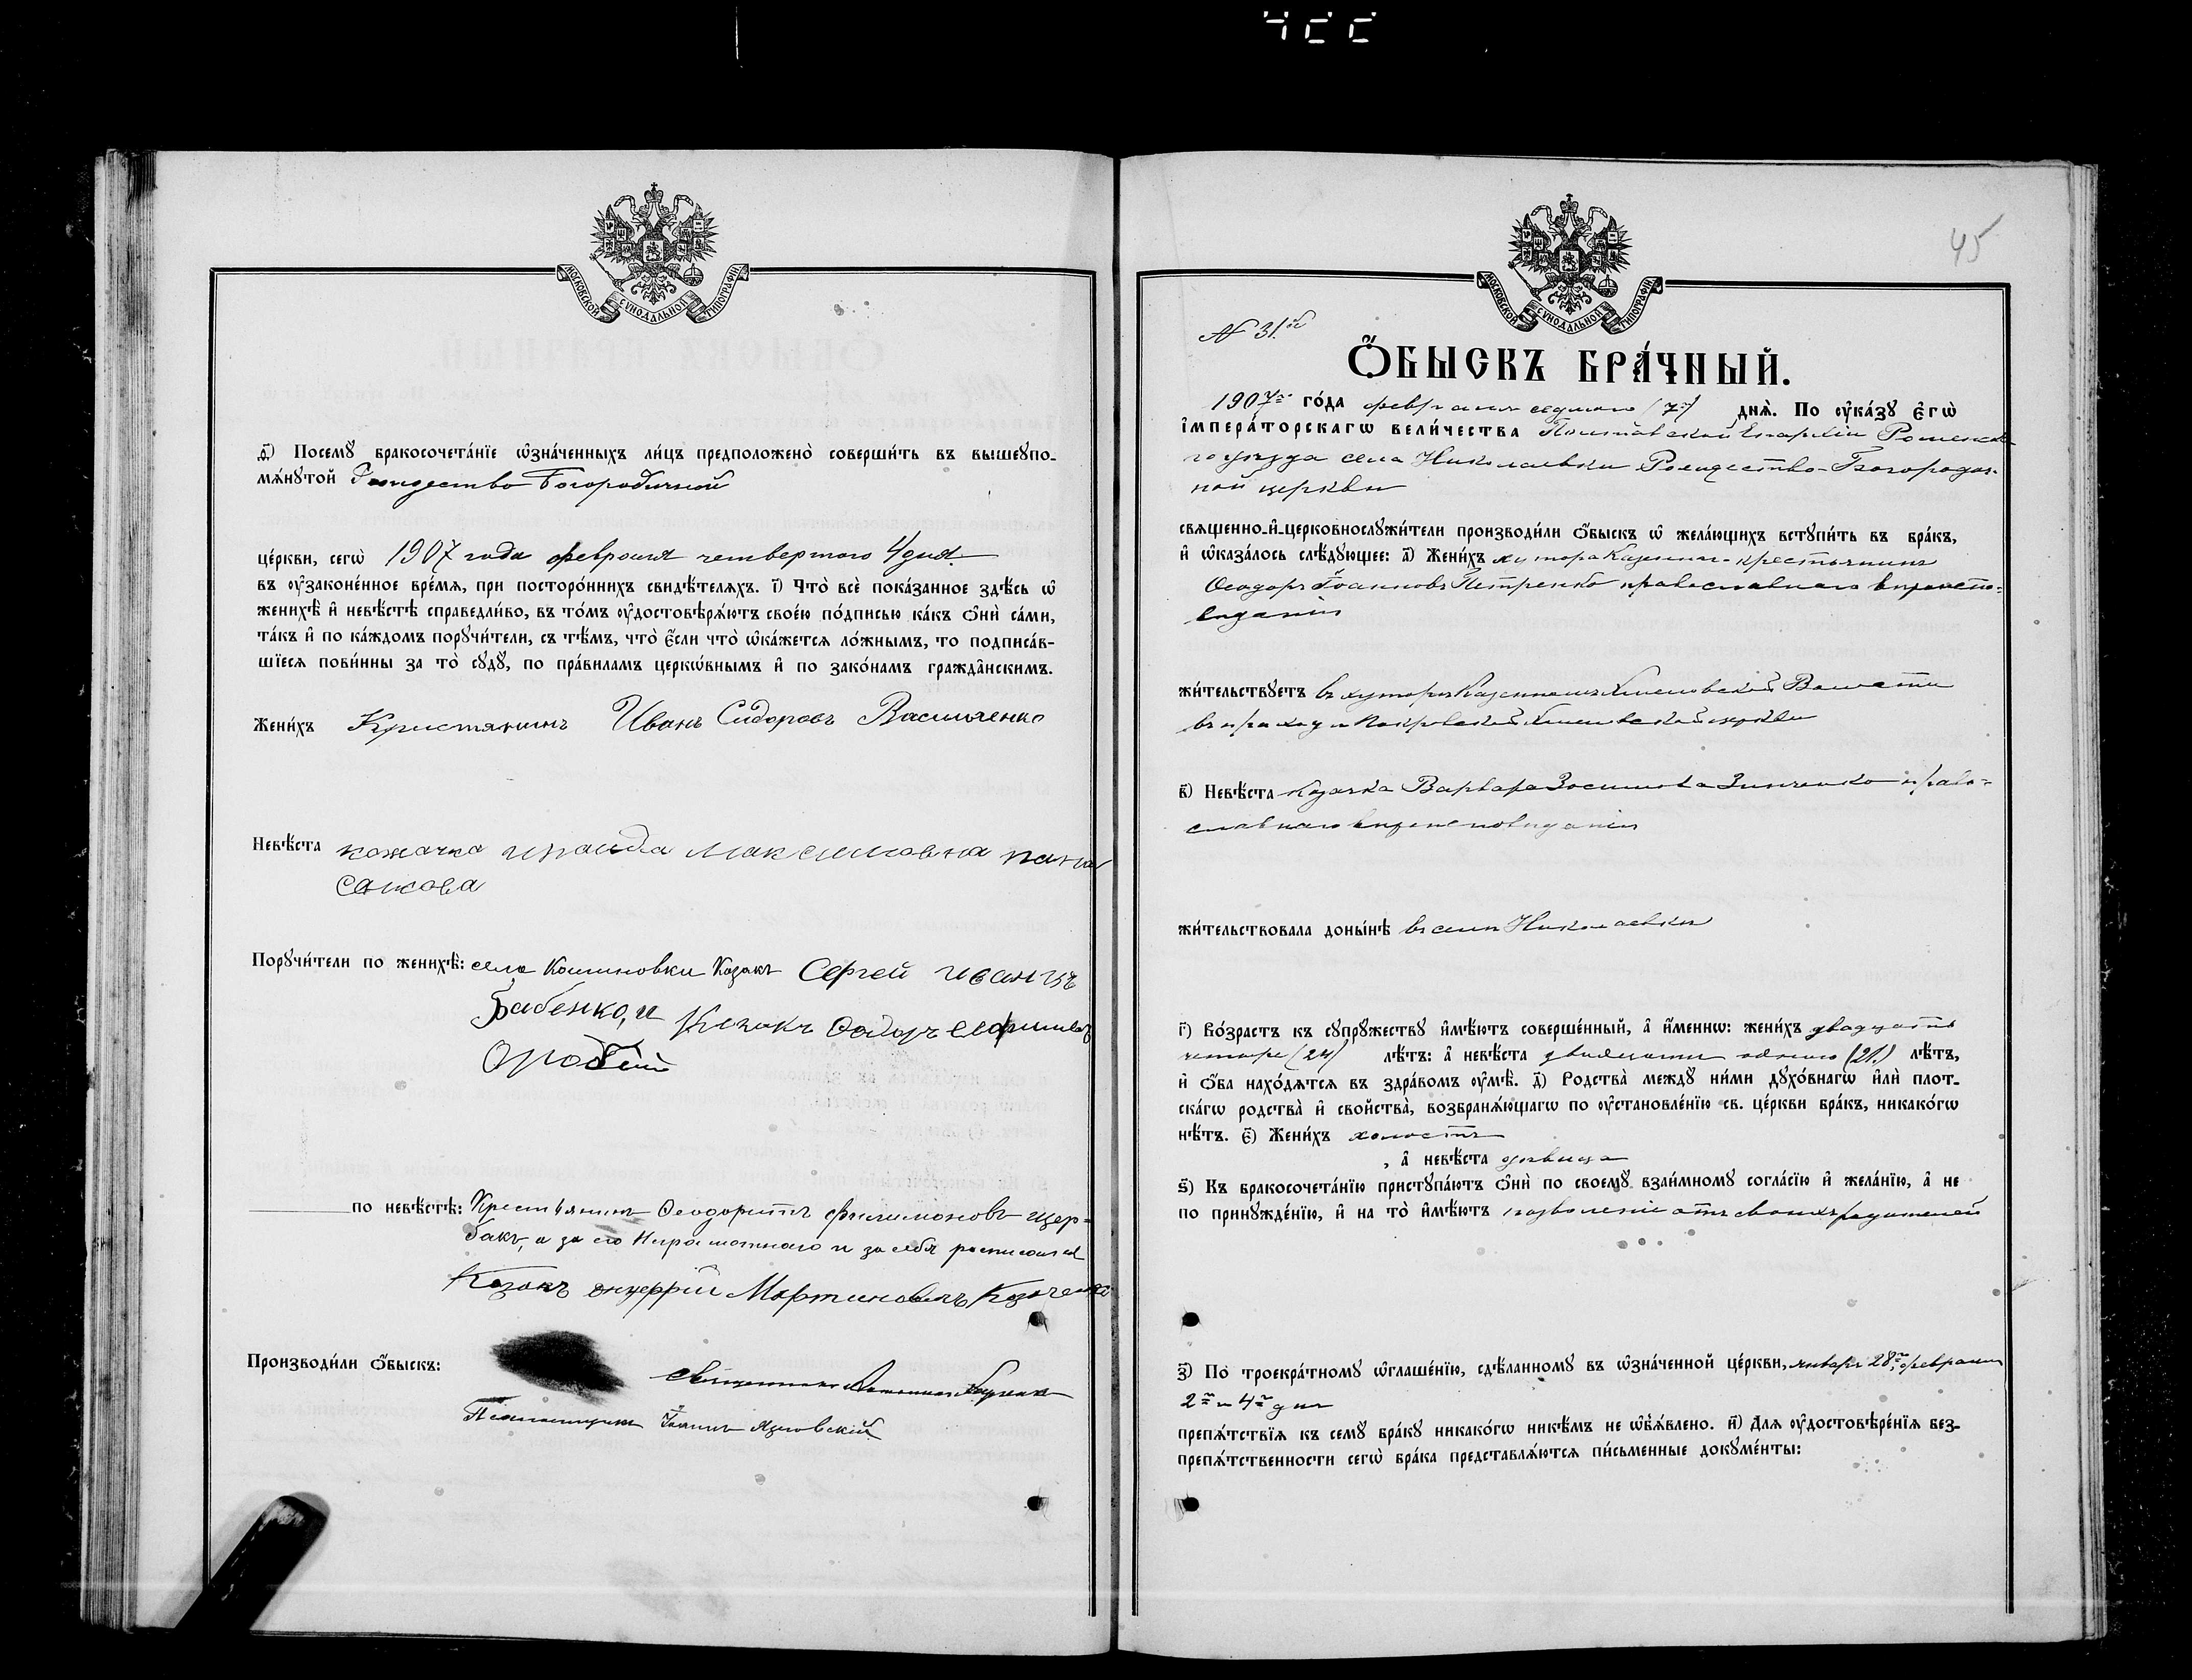 МОСКОВСКОЙ СѴНОДАЛЬНОЙ ТИПОГРАФІИ
д҃) Посемꙋ бракосочета́нїе ѡ҆зна́ченныхъ ли́цъ предположено̀ соверши́ть въ вышеꙋпо-
мѧ́нꙋтой Рождество Богородичной
це́ркви, сегѡ̀ 1907 года февраля четвертого 4 дня
въ оу҆законе́нное вре́мѧ, при посторо́ннихъ свидѣ́телѧхъ. і҃) Что̀ всѐ пока́занное здѣ́сь ѡ҆
женихѣ̀ и҆ невѣ́стѣ справедли́во, въ то́мъ оу҆достовѣрѧ́ютъ свое́ю по́дписью ка́къ ѻ҆нѝ са́ми,
та́къ и҆ по ка́ждомъ порꙋчи́тели, съ тѣ́мъ, что̀ є҆́сли что̀ ѡ҆ка́жетсѧ ло́жнымъ, то подписа́в-
шїесѧ пови́нны за то̀ сꙋдꙋ̀, по пра́виламъ церко́внымъ и҆ по зако́намъ гражда̂нскимъ.
Жени́хъ Кристянинъ Иванъ Сидоровъ Василенко
Невѣ́ста козачка ираида Максимовна пана
сакова
Порꙋчи́тели по женихѣ̀: села Козакъ Сергей иванивъ
Бабенко, и Козакъ Федоръ

по невѣ́стѣ: Крестьянинъ Феодоритъ филимоновъ щер=
бакъ, а за его Неграмотнаго и за себя росписался
Козакъ Мартиновичъ
Производи́ли ѻ҆́быскъ: Священникъ
Псаломщикъ Іоаннъ
45
МОСКОВСКОЙ СѴНОДАЛЬНОЙ ТИПОГРАФІИ
№ 31й
Ѻ҆́БЫСКЪ БРА́ЧНЫЙ.
1907го го́да февраля седмого (7го) днѧ̀. По оу҆ка́зꙋ є҆гѡ̀
і҆мпера́торскагѡ вели́чества Полтавской Епархіи Роменска-
го уѣзда села Николаевки Рождество-Богородич-
ной церкви
свѧщенно-и҆-церковнослꙋжи́тели производи́ли ѻ҆́быскъ ѡ҆ жела́ющихъ встꙋпи́ть въ бра́къ,
и҆ ѡ҆каза́лось слѣ́дꙋющее: а҃) Жени́хъ хутора крестьянинъ
Феодоръ Іоанновъ Петренко православнаго вѣроиспо=
вѣданія
жи́тельствꙋетъ въ хуторѣ Волости
въ приходѣ Покровской церкви
в҃) Невѣ́ста Козачка Варвара Зосимова Зинченко право=
славнаго вѣроисповѣданія
жи́тельствовала доны́нѣ въ селѣ Николаевки
г҃) Во́зрастъ къ сꙋпрꙋ́жествꙋ и҆мѣ́ютъ соверше́нный, а҆ и҆́меннѡ: жени́хъ двадцать
четыре (24) лѣ́тъ: а҆ невѣ́ста двадцати одного (21) лѣ́тъ,
и҆ ѻ҆́ба нахо́дѧтсѧ въ здра́вомъ оу҆мѣ̀. д҃) Родства̀ междꙋ̀ ни́ми дꙋхо́внагѡ и҆лѝ плот-
ска́гѡ родства̀ и҆ свойства̀, возбранѧ́ющагѡ по оу҆становле́нїю св. це́ркви бра́къ, никако́гѡ
нѣ́тъ. є҃) Жени́хъ холостъ
, а҆ невѣ́ста дѣвица
ѕ҃) Къ бракосочета́нїю пристꙋпа́ютъ ѻ҆нѝ по своемꙋ̀ взаи́мномꙋ согла́сїю и҆ жела́нїю, а҆ не
по принꙋжде́нїю, и҆ на то̀ и҆мѣ́ютъ позволеніе отъ своихъ родителей
з҃) По троекра́тномꙋ ѡ҆глаше́нїю, сдѣ́ланномꙋ въ ѡ҆зна́ченной це́ркви, января 28го, февраля
2го и 4го дня
препѧ́тствїѧ къ семꙋ̀ бра́кꙋ никако́гѡ никѣ́мъ не ѡ҆б̾ѧ́влено. и҃) Длѧ оу҆достовѣре́нїѧ без-
препѧ́тственности сегѡ̀ бра́ка представлѧ́ютсѧ пи́сьменные докꙋме́нты: